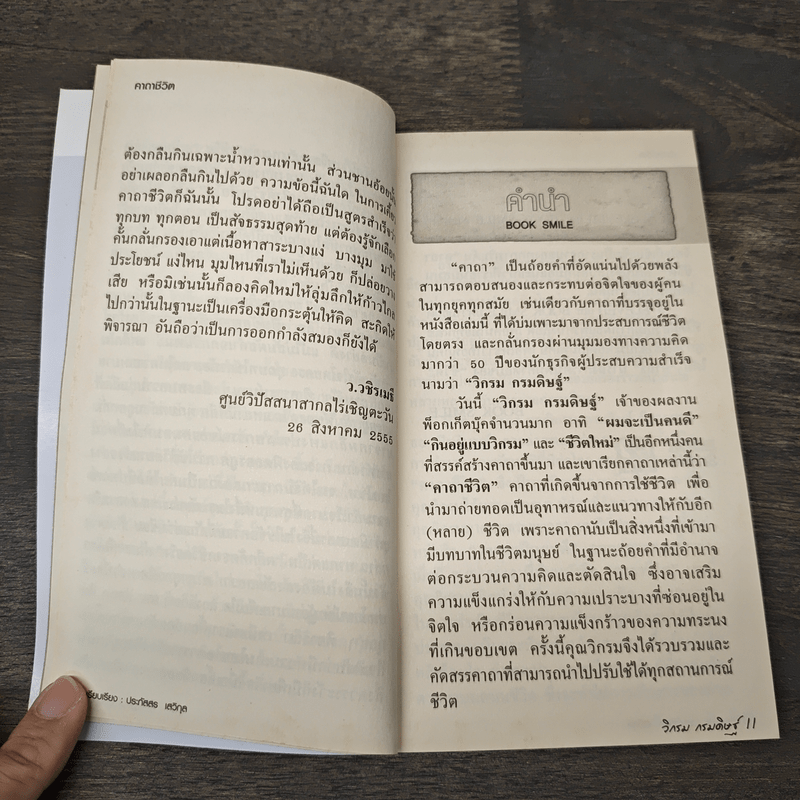 คาถาชีวิต
ต้องกลืนกินเฉพาะน้ำหวานเท่านั้น ส่วนชานอ้อยนั้น
อย่าเผลอกลืนกินไปด้วย ความข้อนี้ฉันใด ในการเคี้ยว
คาถาชีวิตก็ฉันนั้น โปรดอย่าได้ถือเป็นสูตรสำเร็จว่า
ทุกบท ทุกตอน เป็นสัจธรรมสุดท้าย แต่ต้องรู้จักเลือก
คั้นกลั่นกรองเอาแต่เนื้อหาสาระบางแง่ บางมุม มาใช้
ประโยชน์ แง่ไหน มุมไหนที่เราไม่เห็นด้วย ก็ปล่อยวาง
เสีย หรือมิเช่นนั้นก็ลองคิดใหม่ให้ลุ่มลึกให้ก้าวไกล
ไปกว่านั้นในฐานะเป็นเครื่องมือกระตุ้นให้คิด สะกิดให้
พิจารณา อันถือว่าเป็นการออกกำลังสมองก็ยังได้
ว.วชิรเมธี
ศูนย์วิปัสสนาสากลไร่เชิญตะวัน
26 สิงหาคม 2555
เรียบเรียง : ประภัสสร เสวิกุล
คำนำ
BOOK SMILE
“คาถา” เป็นถ้อยคำที่อัดแน่นไปด้วยพลัง
สามารถตอบสนองและกระทบต่อจิตใจของผู้คน
ในทุกยุคทุกสมัย เช่นเดียวกับคาถาที่บรรจุอยู่ใน
หนังสือเล่มนี้ ที่ได้บ่มเพาะมาจากประสบการณ์ชีวิต
โดยตรง และกลั่นกรองผ่านมุมมองทางความคิด
มากว่า 50 ปีของนักธุรกิจผู้ประสบความสำเร็จ
นามว่า “วิกรม กรมดิษฐ์”
วันนี้ “วิกรม กรมดิษฐ์” เจ้าของผลงาน
พ็อกเก็ตบุ๊คจำนวนมาก อาทิ “ผมจะเป็นคนดี”
“กินอยู่แบบวิกรม” และ “ชีวิตใหม่” เป็นอีกหนึ่งคน
ที่สรรค์สร้างคาถาขึ้นมา และเขาเรียกคาถาเหล่านี้ว่า
“คาถาชีวิต” คาถาที่เกิดขึ้นจากการใช้ชีวิต เพื่อ
นำมาถ่ายทอดเป็นอุทาหรณ์และแนวทางให้กับอีก
(หลาย) ชีวิต เพราะคาถานับเป็นสิ่งหนึ่งที่เข้ามา
มีบทบาทในชีวิตมนุษย์ ในฐานะถ้อยคำที่มีอำนาจ
ต่อกระบวนความคิดและตัดสินใจ ซึ่งอาจเสริม
ความแข็งแกร่งให้กับความเปราะบางที่ซ่อนอยู่ใน
จิตใจ หรือกร่อนความแข็งกร้าวของความทระนง
ที่เกินขอบเขต ครั้งนี้คุณวิกรมจึงได้รวบรวมและ
คัดสรรคาถาที่สามารถนำไปปรับใช้ได้ทุกสถานการณ์
ชีวิต
วิกรม กรมดิษฐ์ 11